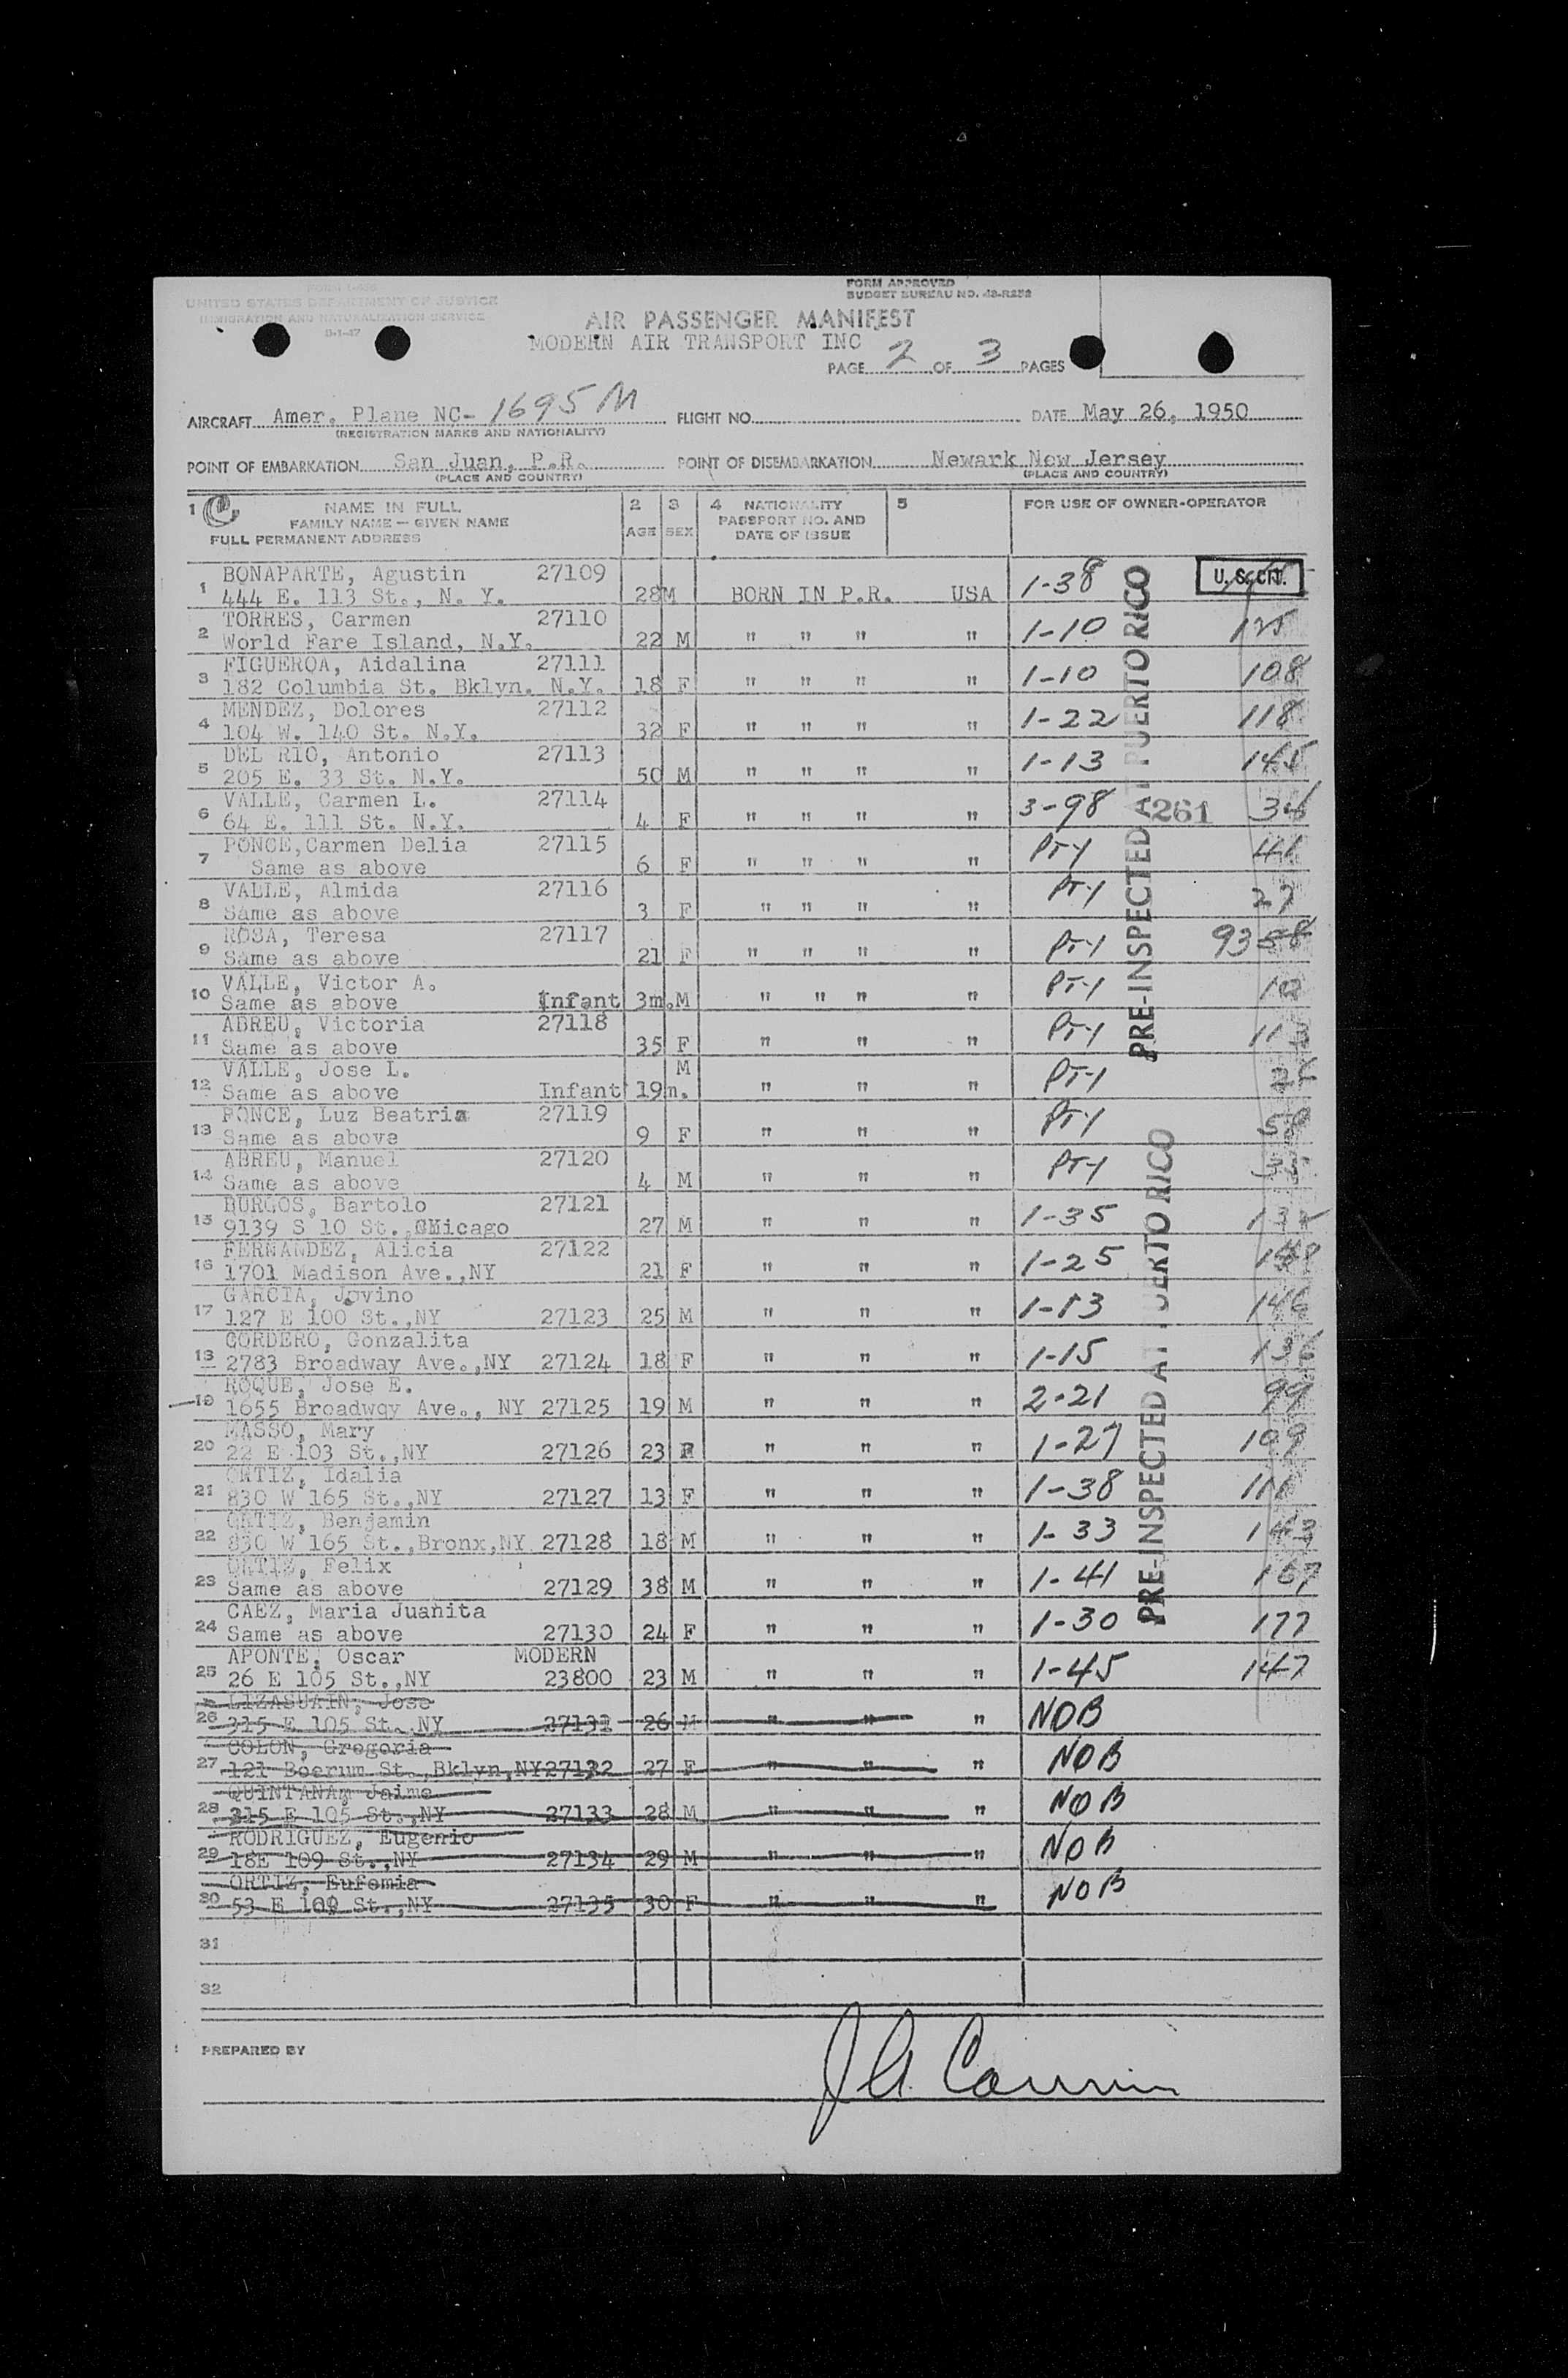 UNITED STATES DEPARTMENT OF JUSTICE
IMMIGRATION AND NATURALIZATION SERVICE
FORM APPROVED
BUDGET BUREAU NO. 43-R252
AIR PASSENGER MANIFEST
MODERN AIR TRANSPORT INC
PAGE 2 OF 3 PAGES
AIRCRAFT Amer. Plane NC- 1695M FLIGHT NO. DATE May 26, 1950
(REGISTRATION MARKS AND NATIONALITY)
POINT OF EMBARKATION San Juan, P.R. POINT OF DISEMBARKATION Newark New Jersey
(PLACE AND COUNTRY) (PLACE AND COUNTRY)
1 NAME IN FULL 2 3 4 NATIONALITY 5 FOR USE OF OWNER-OPERATOR
FAMILY NAME — GIVEN NAME PASSPORT NO. AND
FULL PERMANENT ADDRESS AGE SEX DATE OF ISSUE
BONAPARTE, Agustin 27109
1 444 E. 113 St., N. Y. 28 M BORN IN P.R. USA 1-38 U. S. CIT.
TORRES, Carmen 27110
2 World Fare Island, N.Y. 22 M " " " " 1-10
FIGUEROA, Aidalina 27111
3 182 Columbia St. Bklyn. N.Y. 18 F " " " " 1-10 108
MENDEZ, Dolores 27112
4 104 W. 140 St. N.Y. 32 F " " " " 1-22 118
DEL RIO, Antonio 27113
5 205 E. 33 St. N.Y. 50 M " " " " 1-13 145
VALLE, Carmen L. 27114
6 64 E. 111 St. N.Y. 4 F " " " " 3-98 261
PONCE,Carmen Delia 27115
7 Same as above 6 F " " " " PTY 41
VALLE, Almida 27116
8 Same as above 3 F " " " " PTY 27
ROSA, Teresa 27117
9 Same as above 21 F " " " " PTY
VALLE, Victor A.
10 Same as above Infant 3m. M " " " " PTY
ABREU, Victoria 27118
11 Same as above 35 F " " " PTY
VALLE, Jose L. M
12 Same as above Infant 19m. " " " PTY
PONCE, Luz Beatriz 27119
13 Same as above 9 F " " " PTY
ABREU, Manuel 27120
14 Same as above 4 M " " " PTY
BURGOS, Bartolo 27121
15 9139 S 10 St., Chicago 27 M " " " 1-35
FERNANDEZ, Alicia 27122
16 1701 Madison Ave.,NY 21 F " " " 1-25
GARCIA, Jovino
17 127 E 100 St.,NY 27123 25 M " " " 1-13 146
CORDERO, Gonzalita
18 2783 Broadway Ave.,NY 27124 18 F " " " 1-15 136
ROQUE, Jose E.
19 1655 Broadwqy Ave., NY 27125 19 M " " " 2-21 99
MASSO, Mary
20 22 E 103 St.,NY 27126 23 F " " " 1-27 109
ORTIZ, Idalia
21 830 W 165 St.,NY 27127 13 F " " " 1-38 111
ORTIZ, Benjamin
22 830 W 165 St.,Bronx,NY 27128 18 M " " " 1-33 143
ORTIZ, Felix
23 Same as above 27129 38 M " " " 1-41 167
CAEZ, Maria Juanita
24 Same as above 27130 24 F " " " 1-30 177
APONTE, Oscar MODERN
25 26 E 105 St.,NY 23800 23 M " " " 1-45 147
LIZASUAIN, Jose
26 315 E 105 St. NY 27131 26 M " " " NOB
COLON, Gregoria
27 121 Boerum St.,Bklyn,NY 27132 27 F " " " NOB
QUINTANAM Jaime
28 315 E 105 St.,NY 27133 28 M " " " NOB
RODRIGUEZ, Eugenio
29 18E 109 St.,NY 27134 29 M " " " NOB
ORTIZ, Eufemia
30 53 E 109 St.,NY 27135 30 F " " " NOB
31
32
PRE-INSPECTED AT PUERTO RICO
PRE-INSPECTED AT PUERTO RICO
PREPARED BY